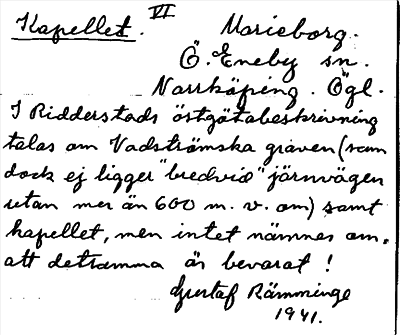 Kapellet. VI Marieborg.
Ö. Eneby sn.
Norrköping. Ögl.
I Ridderstads östgötabeskrivning
talas om Vadströmska graven (som
dock ej ligger "bredvid" järnvägen
utan mer än 600 m. v. om) samt
kapellet, men intet nämnes om,
att detsamma är bevarat!
Gustaf Rämminge
1941.